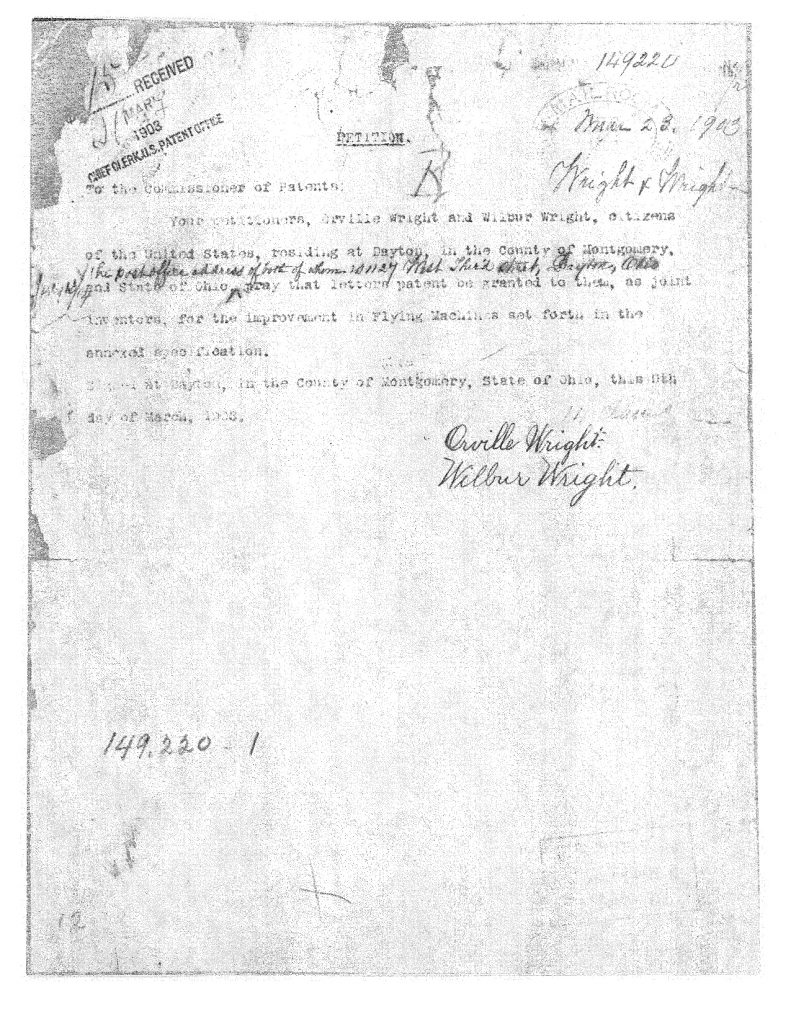 149220
RECEIVED
MAR
1903
CHIEF CLERK, U.S. PATENT OFFICE
MAIL ROOM
Mar 23. 1903
PETITION.
Wright & Wright
To the Commissioner of Patents:
Your petitioners, Orville Wright and Wilbur Wright, citizens
of the United States, residing at Dayton, in the County of Montgomery,
the post office address of both of whom is 1127 West Third street, Dayton, Ohio
and State of Ohio, pray that letters patent be granted to them, as joint
inventors, for the improvement in Flying Machines set forth in the
annexed specification.
Signed at Dayton, in the County of Montgomery, State of Ohio, this
day of March, 1903.
Orville Wright.
Wilbur Wright.
149.220 - 1
12